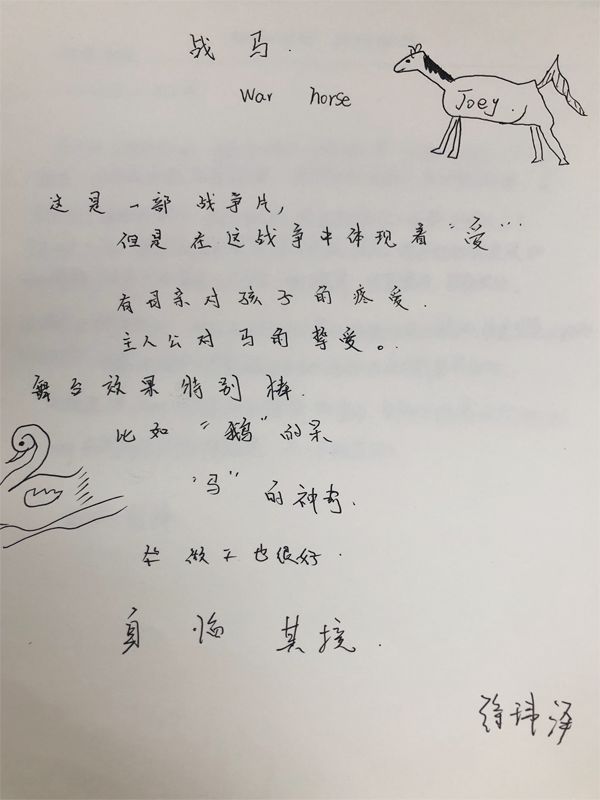 战马.
War horse
Joey.
这是一部战争片,
但是在这战争中体现着“爱”…
有母亲对孩子的疼爱.
主人公对马的挚爱。.
舞台效果特别棒.
比如“鹅”的呆
“马”的神奇.
做工也很好.
身临其境.
徐玮泽